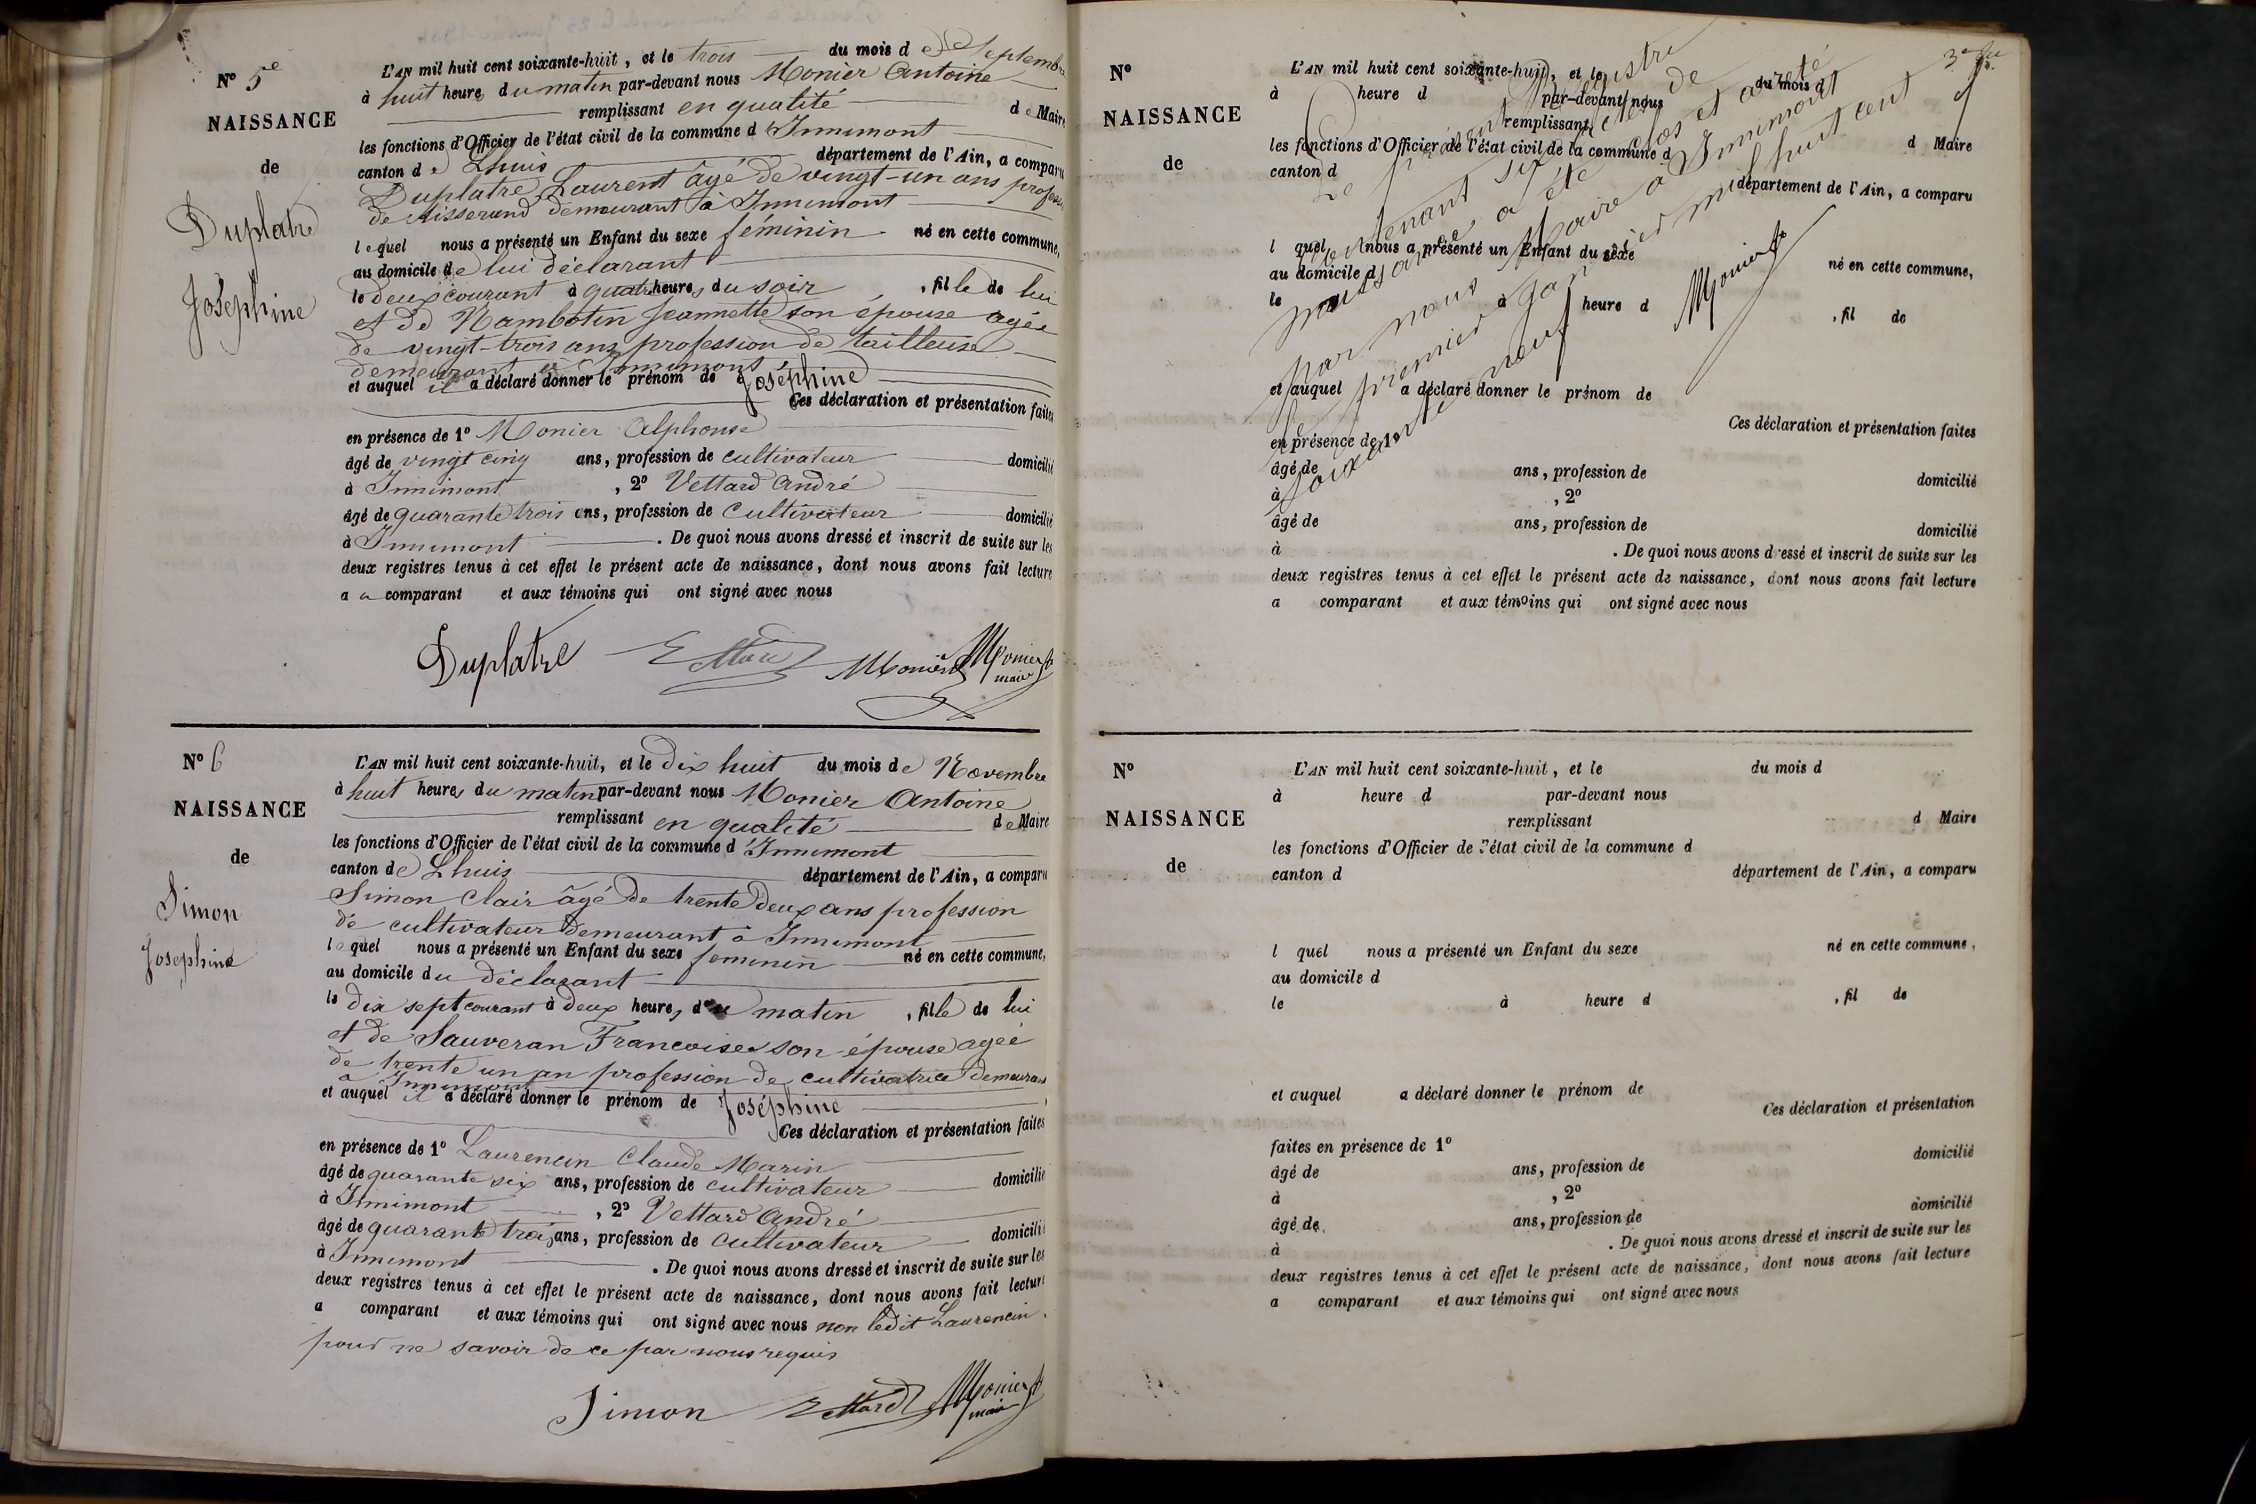 Nº 5e
NAISSANCE
de
Duplatre
Joséphine
L'AN mil huit cent soixante-huit, et le trois du mois de Septembre
à huit heures du matin par-devant nous Monier Antoine
remplissant en qualité de Maire
les fonctions d'Officier de l'état civil de la commune d'Innimont
canton de Lhuis département de l'Ain, a comparu
Duplatre Laurent âgé de vingt-un ans profession
de tisserand demeurant à Innimont
lequel nous a présenté un Enfant du sexe féminin né en cette commune,
au domicile de lui déclarant
le deux courant à quatre heures du soir, fille de lui
et de Nambotin Jeannette son épouse agée
de vingt-trois ans profession de tailleuse
demeurant à Innimont
et auquel il a déclaré donner le prénom de Joséphine
Ces déclaration et présentation faites
en présence de 1º Monier Alphonse
âgé de vingt cinq ans, profession de cultivateur domicilié
à Innimont, 2º Vettard André
âgé de quarante trois ans, profession de Cultivateur domicilié
à Innimont. De quoi nous avons dressé et inscrit de suite sur les
deux registres tenus à cet effet le présent acte de naissance, dont nous avons fait lecture
au comparant et aux témoins qui ont signé avec nous
Duplatre Vettard Monier Monier
maire
Nº 6
NAISSANCE
de
Simon
Josephine
L'AN mil huit cent soixante-huit, et le dix huit du mois de Novembre
à huit heures du matin par-devant nous Monier Antoine
remplissant en qualité de Maire
les fonctions d'Officier de l'état civil de la commune d'Innimont
canton de Lhuis département de l'Ain, a comparu
Simon Clair âgé de trente deux ans profession
de cultivateur demeurant à Innimont
lequel nous a présenté un Enfant du sexe feminin né en cette commune,
au domicile du déclarant
le dix sept courant à deux heures du matin, fille de lui
et de Sauveran Francoise son épouse agée
de trente un an profession de cultivatrice demeurant
à Innimont
et auquel il a déclaré donner le prénom de Joséphine
Ces déclaration et présentation faites
en présence de 1º Laurencin Claude Marin
âgé de quarante six ans, profession de cultivateur domicilié
à Innimont, 2º Vettard André
âgé de quarante trois ans, profession de Cultivateur domicilié
à Innimont. De quoi nous avons dressé et inscrit de suite sur les
deux registres tenus à cet effet le présent acte de naissance, dont nous avons fait lecture
a comparant et aux témoins qui ont signé avec nous non ledit Laurencin
pour ne savoir de ce par nous requis
Simon Vettard Monier
maire
3e
Nº
NAISSANCE
de
L'AN mil huit cent soixante-huit, et le du mois d
à heure d par-devant nous
remplissant d Maire
les fonctions d'Officier de l'état civil de la commune d
canton d département de l'Ain, a comparu
l quel nous a présenté un Enfant du sexe né en cette commune,
au domicile d
le à heure d, fil de
et auquel a déclaré donner le prénom de
Ces déclaration et présentation faites
en présence de 1º
âgé de ans, profession de domicilié
à, 2º
âgé de ans, profession de domicilié
à. De quoi nous avons dressé et inscrit de suite sur les
deux registres tenus à cet effet le présent acte de naissance, dont nous avons fait lecture
a comparant et aux témoins qui ont signé avec nous
Le présent registre
contenant six actes de
naissance a été clos et arreté
par nous Maire à Innimont
le premier Janvier mil huit cent
soixante neuf
Monier
Nº
NAISSANCE
de
L'AN mil huit cent soixante-huit, et le du mois d
à heure d par-devant nous
remplissant d Maire
les fonctions d'Officier de l'état civil de la commune d
canton d département de l'Ain, a comparu
l quel nous a présenté un Enfant du sexe né en cette commune,
au domicile d
le à heure d, fil de
et auquel a déclaré donner le prénom de
Ces déclaration et présentation
faites en présence de 1º
âgé de ans, profession de domicilié
à, 2º
âgé de ans, profession de domicilié
à. De quoi nous avons dressé et inscrit de suite sur les
deux registres tenus à cet effet le présent acte de naissance, dont nous avons fait lecture
a comparant et aux témoins qui ont signé avec nous